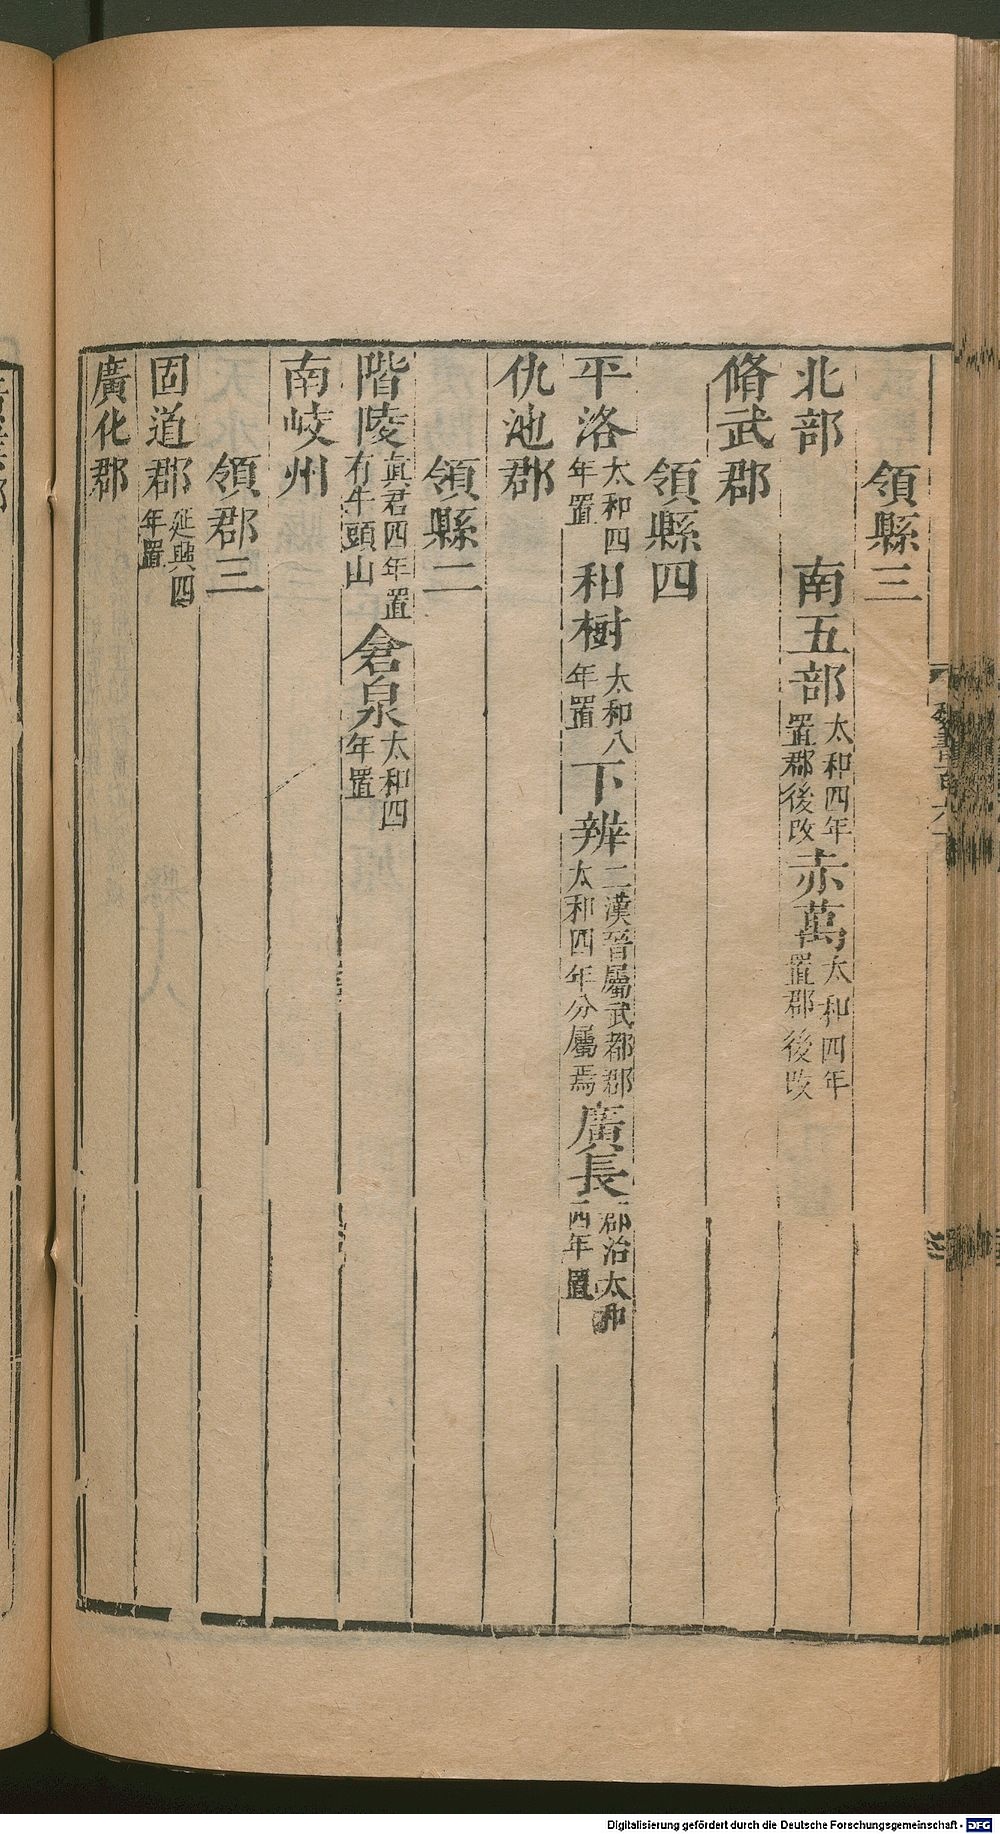 領縣三
北部 南五部 太和四年置郡後改 赤萬 太和四年置郡後改
脩武郡
領縣四
平洛 太和四年置 和樹 太和八年置 下辨 二漢晉屬武都郡太和四年分屬焉 廣長 郡治太和四年置
仇池郡
領縣二
階陵 真君四年置有牛頭山 倉泉 太和四年置
南岐州
領郡三
固道郡 延興四年置
廣化郡
Digitalisierung gefördert durch die Deutsche Forschungsgemeinschaft - DFG